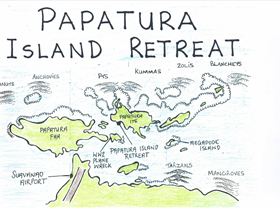 PAPATURA
ISLAND RETREAT
ZOLIS
BLANCHEYS
KUMMAS
ANCHOVIES
P45
PAPATURA
ITE
PAPATURA
FAA
MEGAPODE
ISLAND
PAPATURA ISLAND
RETREAT
WW2
PLANE
WRECK
TARZANS
SUAVANAO
AIRPORT
MANGROVES